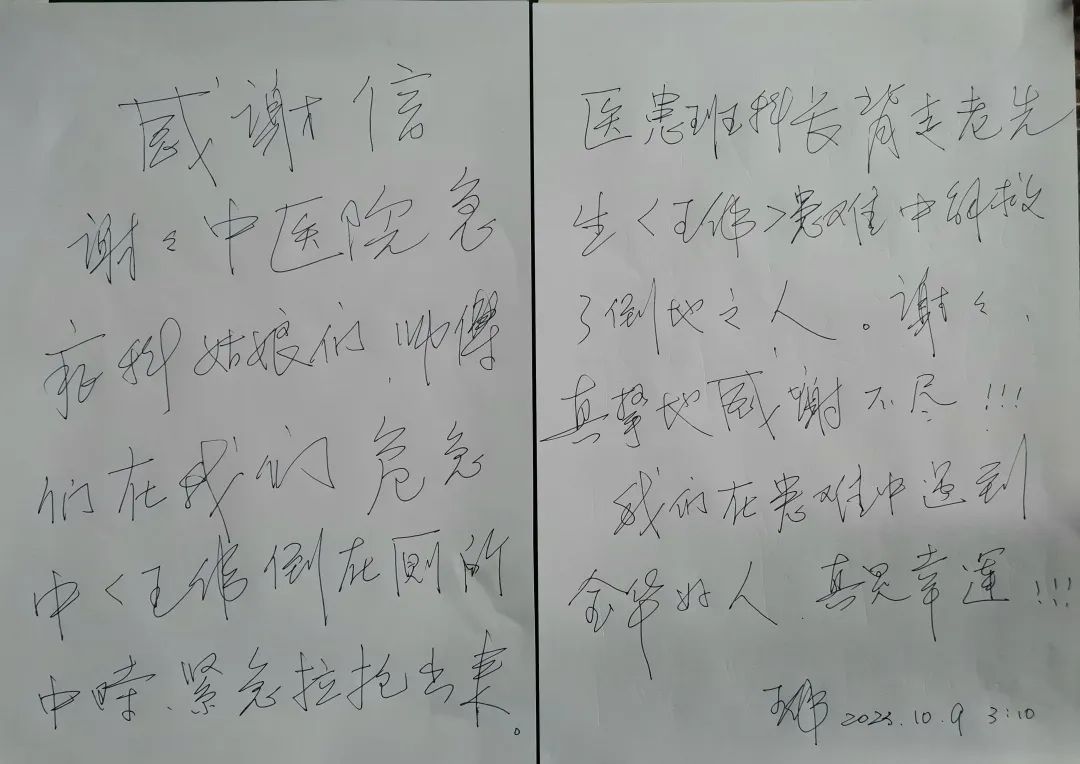 感谢信
谢々中医院急
症科姑娘们、帅傅
们在我们危急
中〈王伟倒在厕所
中時、紧急拉抱出来。
医患班科长背走老先
生〈王伟〉患难中解救
了倒地之人。谢々、
真挚地感谢不尽!!!
我们在患难中遇到
金华好人、真是幸運!!!
王伟 2023.10.9 3:10